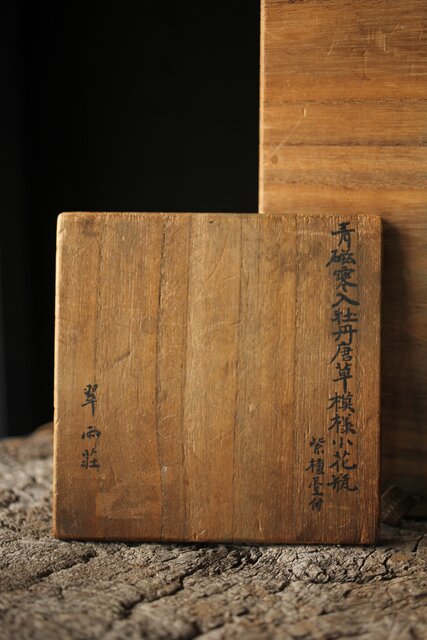 青磁寒入牡丹唐草模様小花瓶
紫檀臺付
翠雨荘